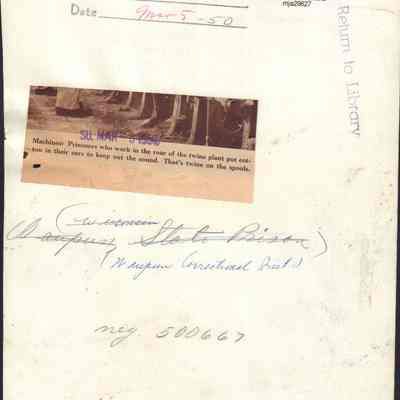 mjs29627
Date Mar 5 - 50
Return to Library
SU. MAR 5 1950
Machines: Prisoners who work in the roar of the twine plant put cot-
ton in their ears to keep out the sound. That's twine on the spools.
(Wisconsin
Waupun State Prison)
(Waupun Correctional Inst.)
neg. 500667